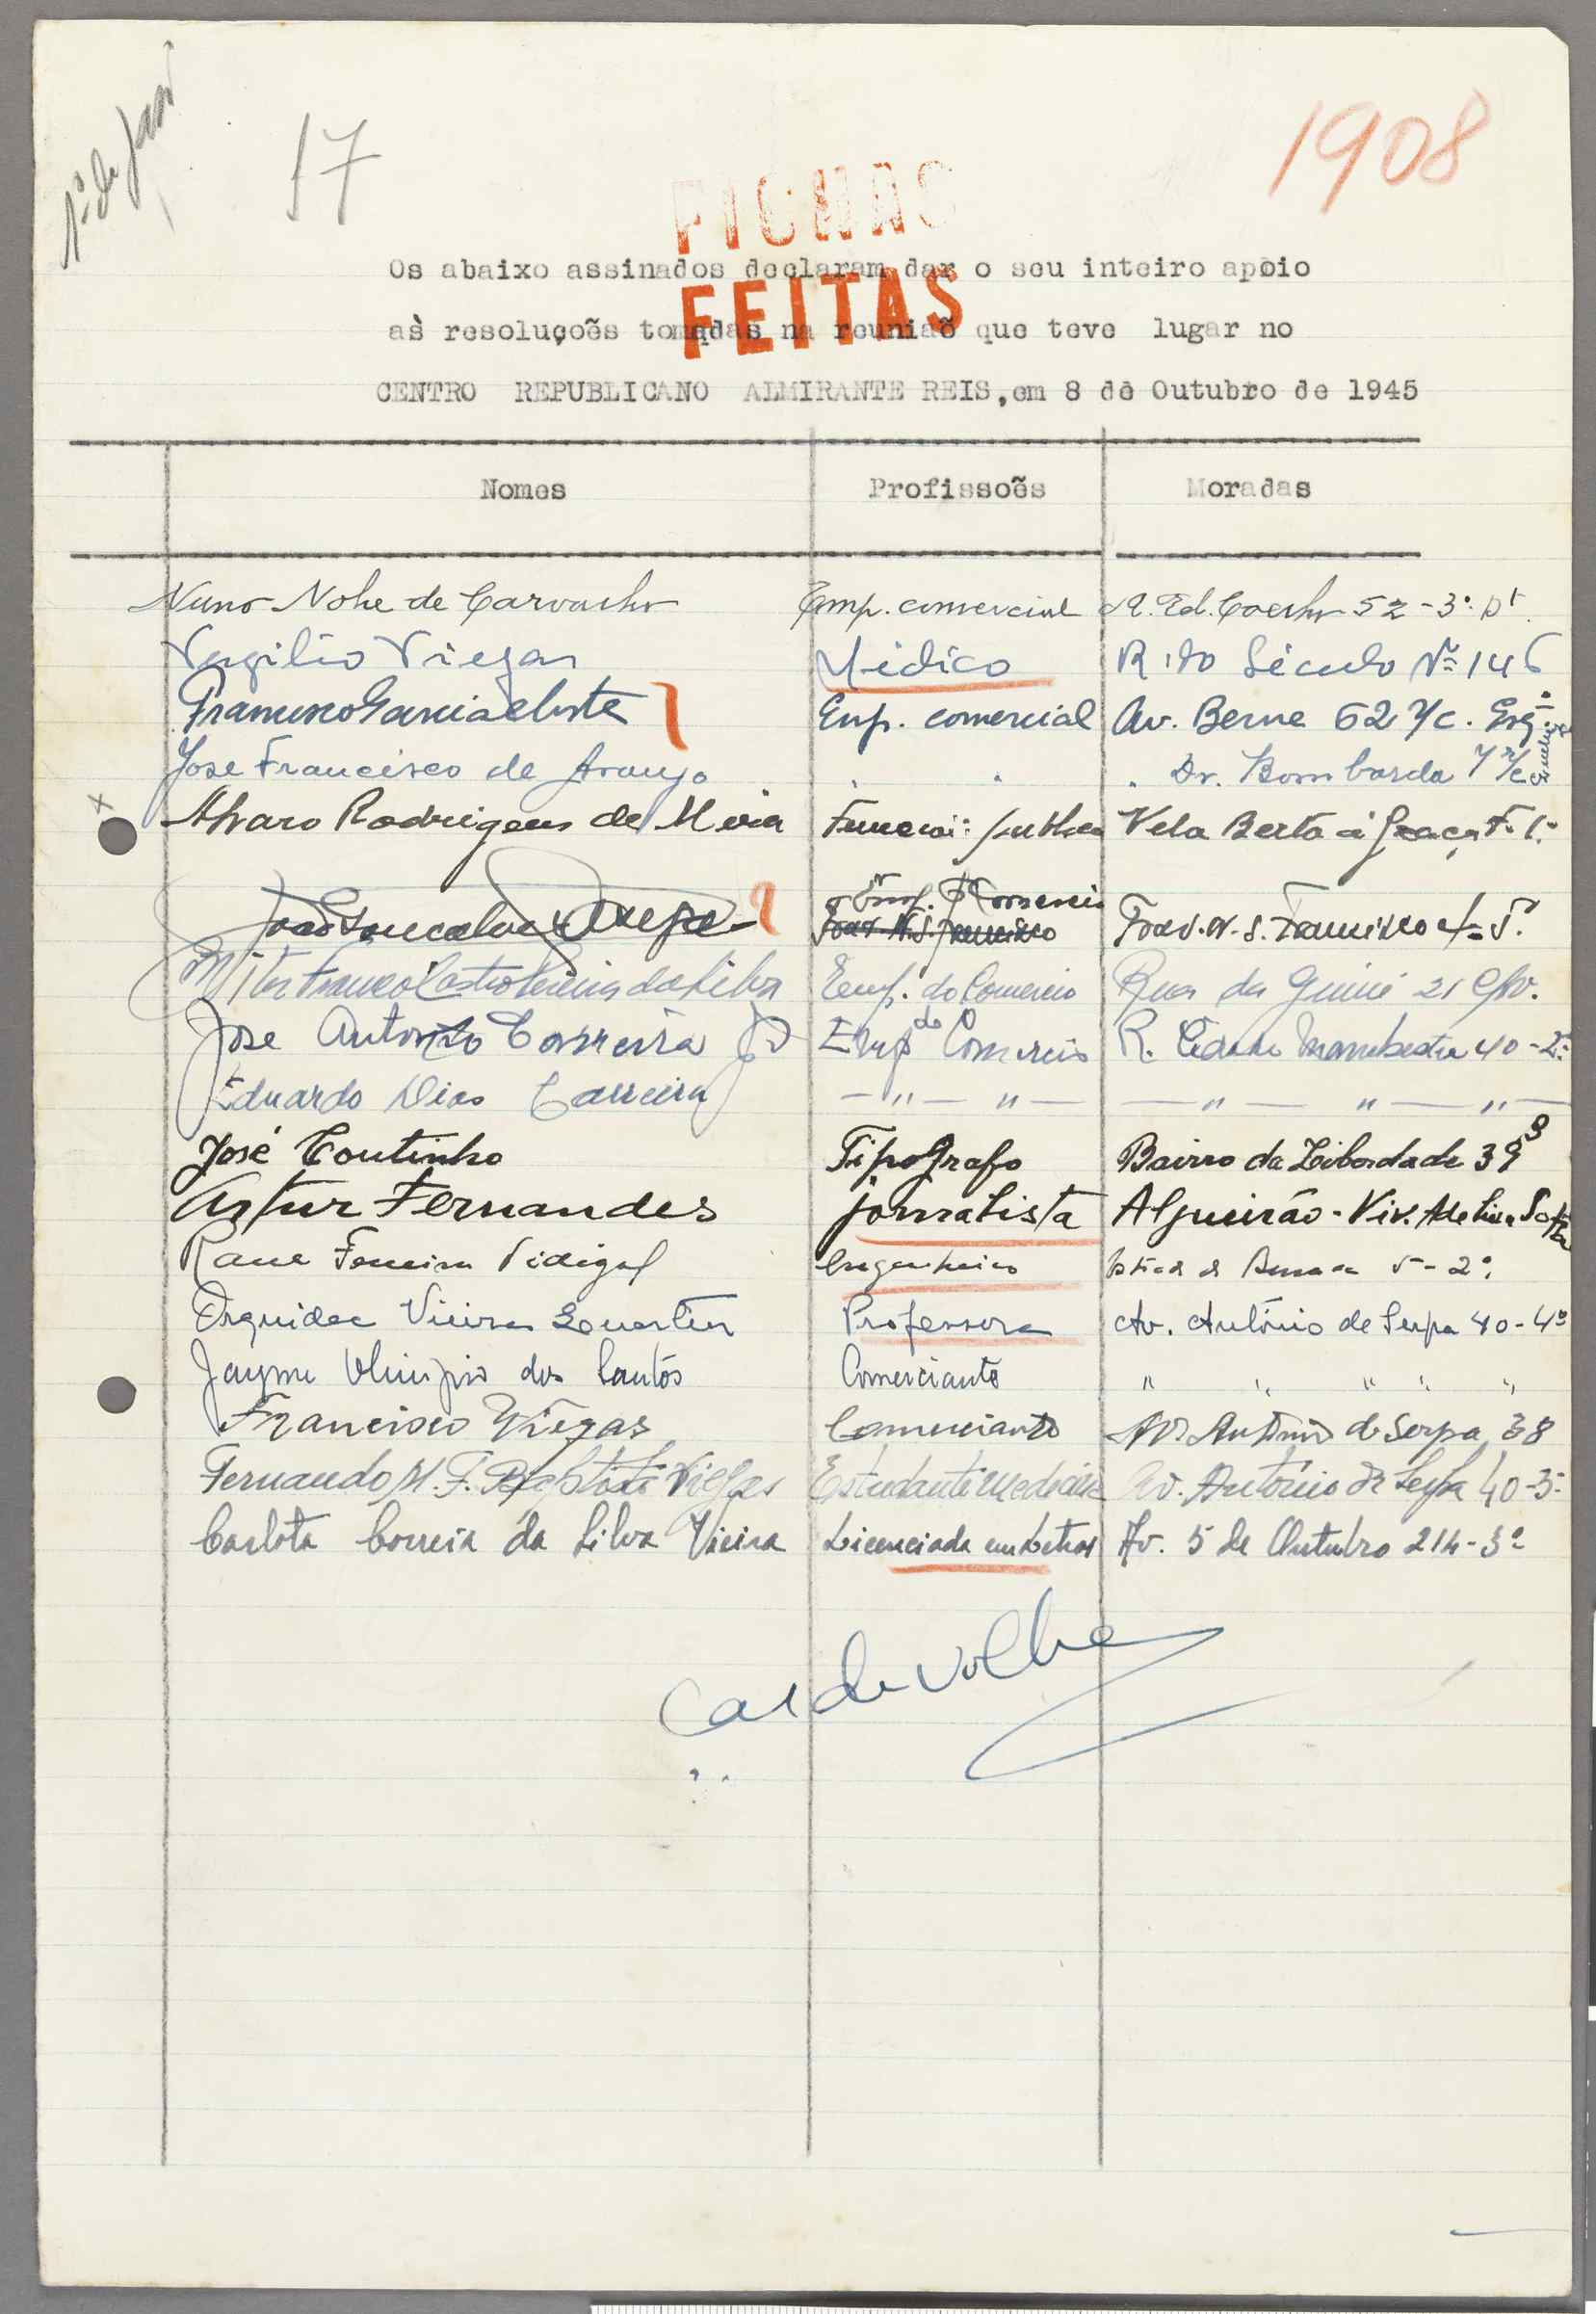 1º de Jan
17
1908
FICHAS
FEITAS
Os abaixo assinados declaram dar o seu inteiro apòio
as̀ resoluçoẽs tomadas na reuniaõ que teve lugar no
CENTRO REPUBLICANO ALMIRANTE REIS, em 8 de Outubro de 1945
Nomes Profissoẽs Moradas
Nuno de Carvalho Emp. comercial R. Ed. Coelho 52-3º Dt
Virgilio Viegas Médico R. do Século Nº 146
Francisco Garcia Emp. comercial Av. Berne 62 r/c. Esqº
Jose Francisco de Araujo " " " Dr. Bombarda 7 r/c
Alvaro Rodrigues de Funcioº publico Vila Berta á Graça F. 1º
João Gonçalves Emp. Comercio Trav. N. S.
Franco Castro da Silva Emp. do Comercio Rua da Guiné 21 c/v.
Jose Antonio Correia Jr Emp do Comercio R. Cidade 40-2º
Eduardo Dias Carreira — " — " — — " — " — " —
José Coutinho Tipografo Bairro da Liberdade 39
Artur Fernandes jornalista Algueirão - Viv. Adelina
Raul Ferreira Vidigal Engenheiro 5-2º
Orquidea Vieira Professora Av. António de Serpa 40-4º
Jayme Olimpio dos Santos Comerciante " " " " "
Francisco Viegas Comerciante Av. Antonio de Serpa 38
Fernando M. F. Baptista Viegas Estudante Medicina Av. António de Serpa 40-3º
Carlota Correia da Silva Vieira Licenciada em Letras Av. 5 de Outubro 214-3º